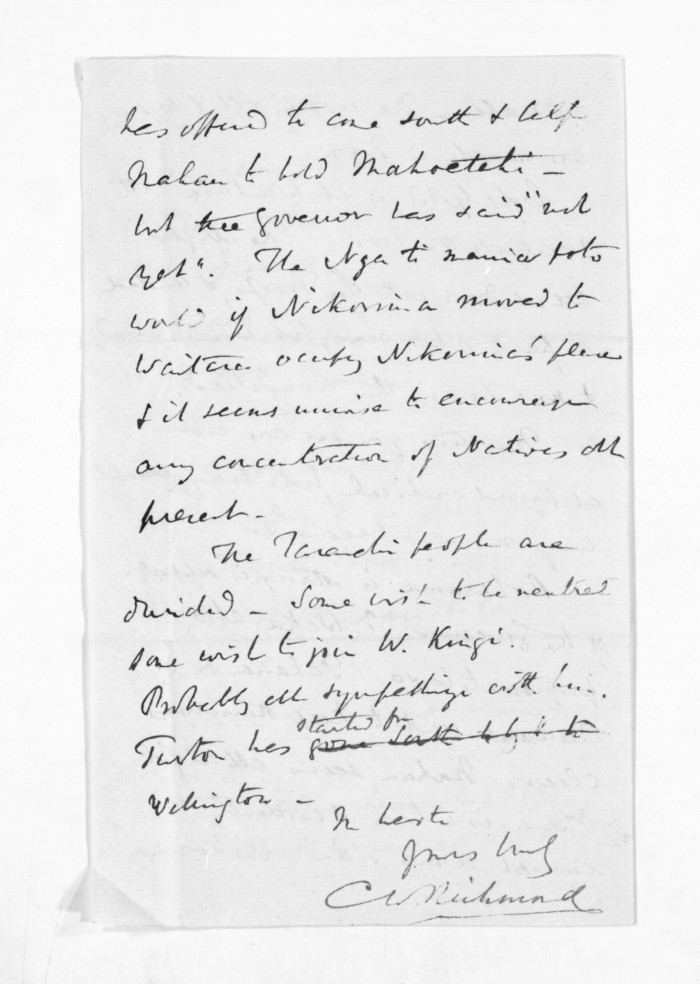 has offered to come south & help
Mahau to hold Mahoetahi –
but the Governor has said "not
yet". The Ngatimaniapoto
would if Nikorima moved to
Waitara occupy Nikorima's place
& it seems unwise to encourage
any concentration of Natives at
present –
The Taranaki people are
divided – Some wish to be neutral
some wish to join W. Kingi.
Probably all sympathize with him.
Turton has started for
Wellington –
In haste
Yours truly
C W Richmond